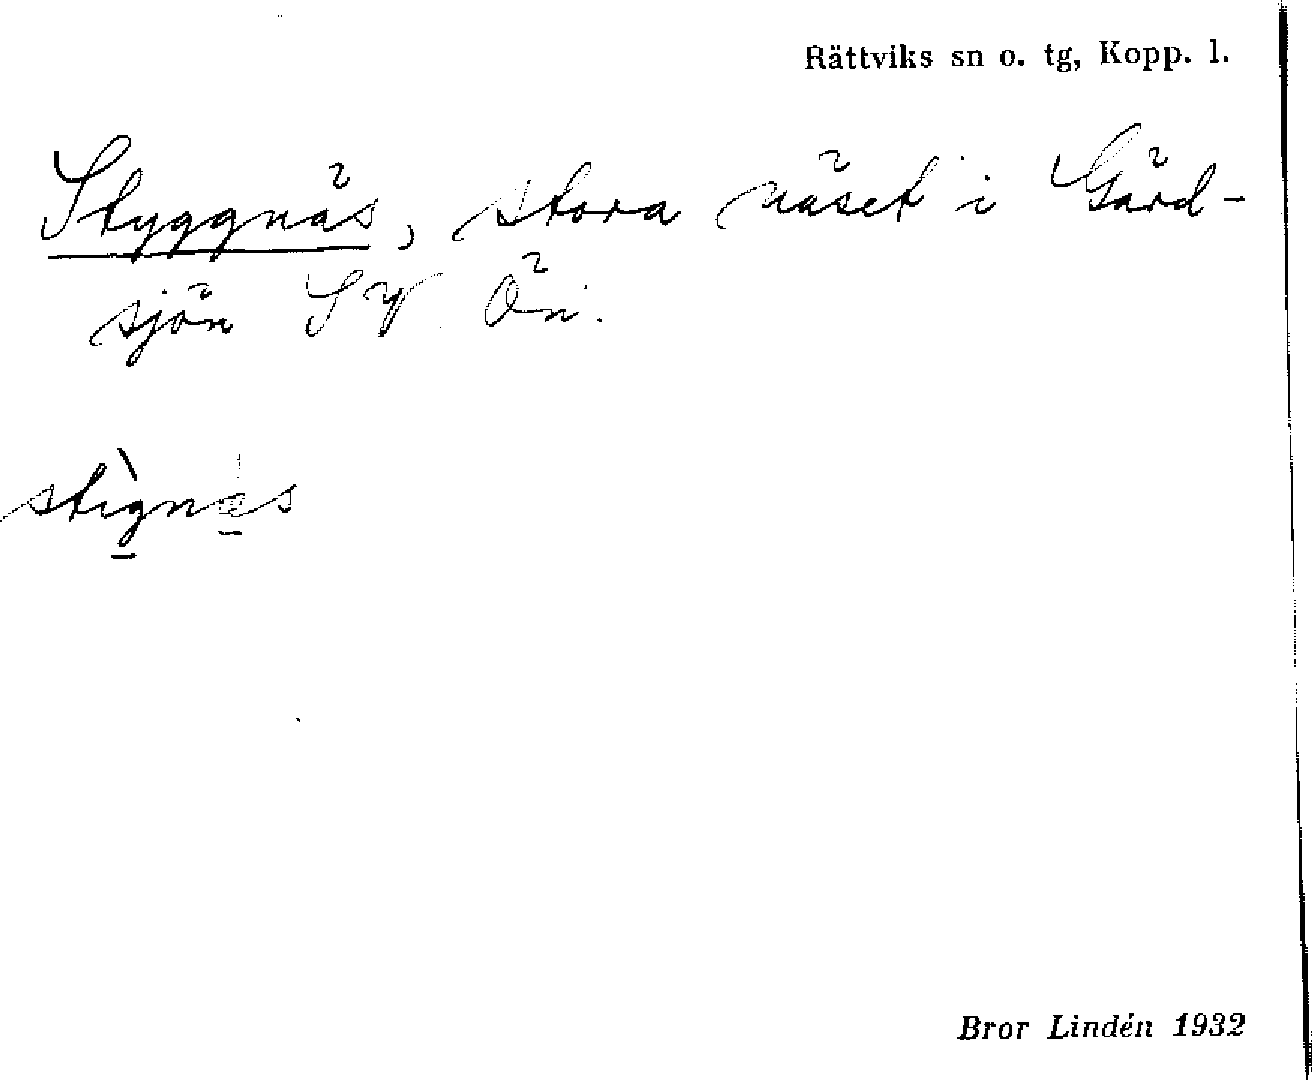 Rättviks sn o. tg, Kopp. l.
Styggnäs, stora näset i Gärd-
sjön SV Ön.
stìgnäs
Bror Lindén 1932